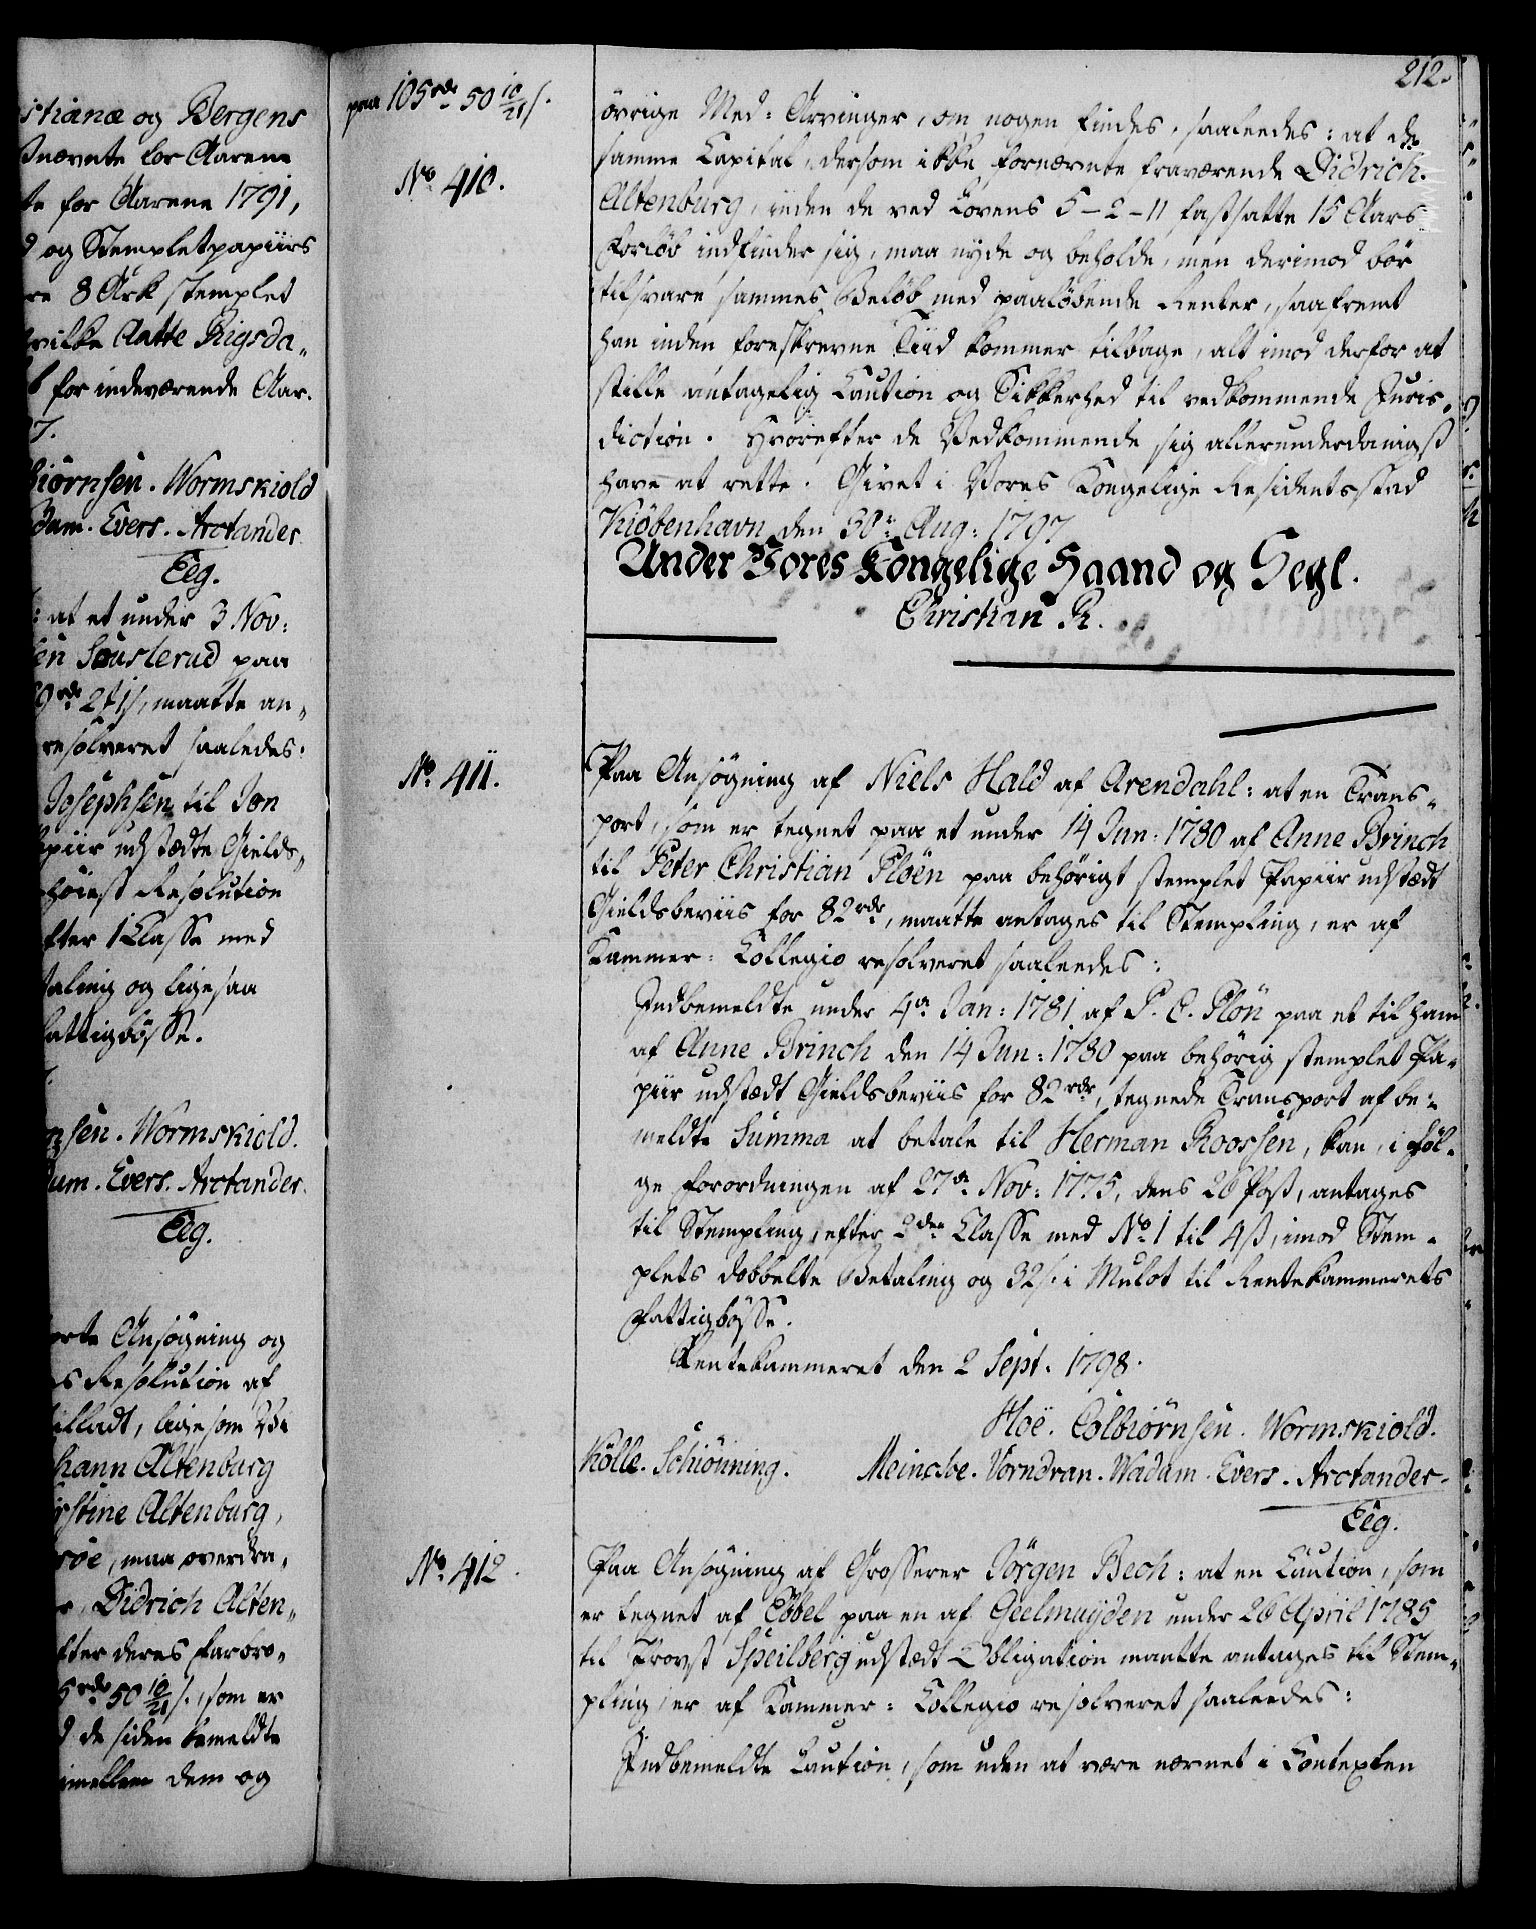 stianæ og Bergens
nævnte for Aarene
te for Aarene 1791,
og Stempletpapiirs
re 8 Ark stemplet
hvilke Aatte Rigsda„
for indeværende Aar.
biørnsen. Wormskiold
dum. Evers. Arctander
Eeg.
: at et under 3 Nov:
sen Susterud paa
9 rdr 24 ß, maatte an„
resolveret saaledes:
Josephsen til Jon
piir udstædte Gields„
høiest Resolution
fter 1 Classe med
taling og ligesaa
fattigbösse.
nsen. Wormskiold.
um. Evers. Arctander.
Eeg.
Ansøgning og
s Resolution af
tilladt, ligesom Vi
hann Altenburg
rstine Altenburg,
röe, maa overdra„
Didrich Alten„
fter deres Farbro„
5 rdr 50 10/21 ß., som er
de siden bemeldte
imellem dem og
paa 105 rdr 50 10/21 ß.
No 410.
212.
övrige Med: Arvinger, om nogen findes, saaledes: at de
samme Capital, dersom ikke fornævnte fraværende Didrich
Altenburg, inden de ved Lovens 5-2-11 fastsatte 15 Aars
Forløb indfinder sig, maa nyde og beholde, men derimod bör
tilsvare sammes Belöb med paalöbende Renter, saafremt
han inden foreskrevne Tiid kommer tilbage, alt imod derfor at
stille antagelig Caution og Sikkerhed til vedkommende Juris„
diction. Hvorefter de Vedkommende sig allerunderdanigst
have at rette. Givet i Vores Kongelige Residentsstad
Kiöbenhavn den 30te Aug: 1797
Under Vores Kongelige Haand og Segl.
Christian R.
No 411.
Paa Ansøgning af Niels Hald af Arendahl: at en Trans„
port, som er tegnet paa et under 14 Jun: 1780 af Anne Brinch
til Peter Christian Plöen paa behörigt stemplet Papiir udstædt
Gieldsbeviis for 82 rdr, maatte antages til Stempling, er af
Kammer: Collegio resolveret saaledes:
Indbemeldte under 4de Jan: 1781 af P. C. Plön paa et til ham
af Anne Brinch den 14 Jun: 1780 paa behörig stemplet Pa„
piir udstædt Gieldsbeviis for 82 rdr, tegnede Transport af be„
meldte Summa at betale til Herman Roossen, kan, i föl„
ge Forordningen af 27de Nov: 1775, dens 26 Post, antages
til Stempling, efter 2den Classe med No 1 til 4 ß, imod Stem„
plets dobbelte Betaling og 32 ß. i Mulct til Rentekammerets
Fattigbösse.
Rentekammeret den 2 Sept. 1798.
Hoë. Colbiørnsen. Wormskiold.
Kölle. Schiönning. Meincke. Vorndran. Wadum. Evers. Arctander.
Eeg.
No 412.
Paa Ansøgning af Grosserer Jörgen Bech: at en Caution, som
er tegnet af Ebbel paa en af Geelmuyden under 26 April 1785
til Provst Speilberg udstædt Obligation maatte antages til Stem„
pling, er af Kammer: Collegio resolveret saaledes:
Indbemeldte Caution, som uden at være nævnet i Contexten